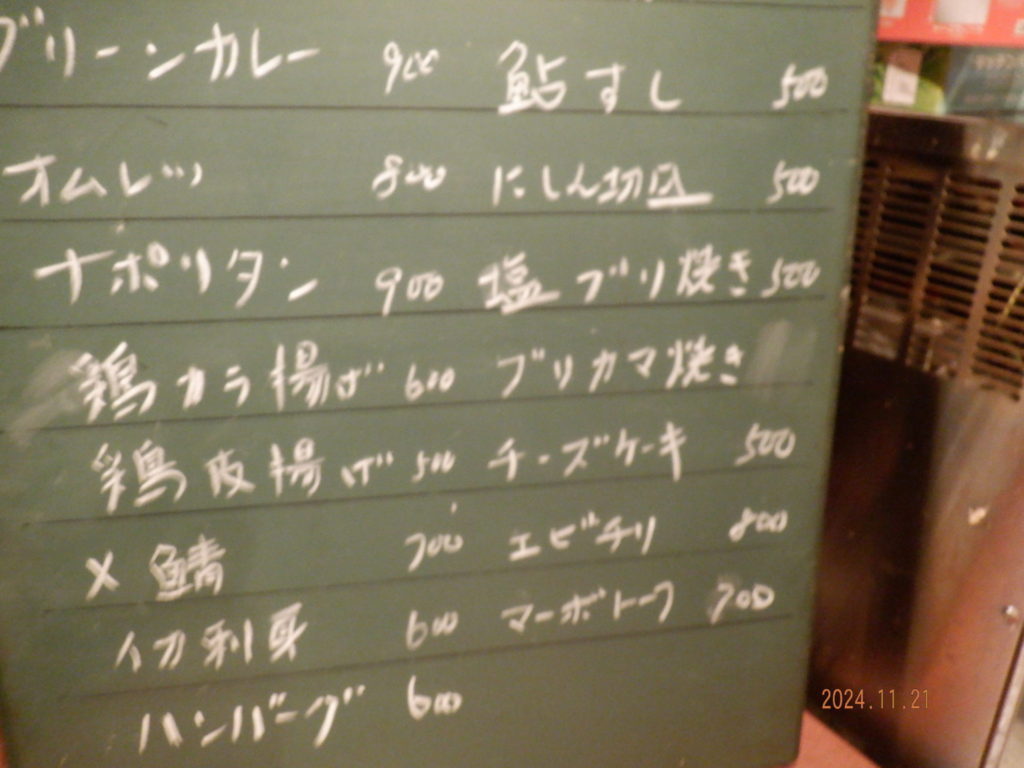 グリーンカレー 900 鮎すし 500
オムレツ 800 にしん切込 500
ナポリタン 900 塩ブリ焼き 500
鶏カラ揚げ 600 ブリカマ焼き
鶏皮揚げ 500 チーズケーキ 500
〆鯖 700 エビチリ 800
イカ刺身 600 マーボトーフ 700
ハンバーグ 600
2024.11.21